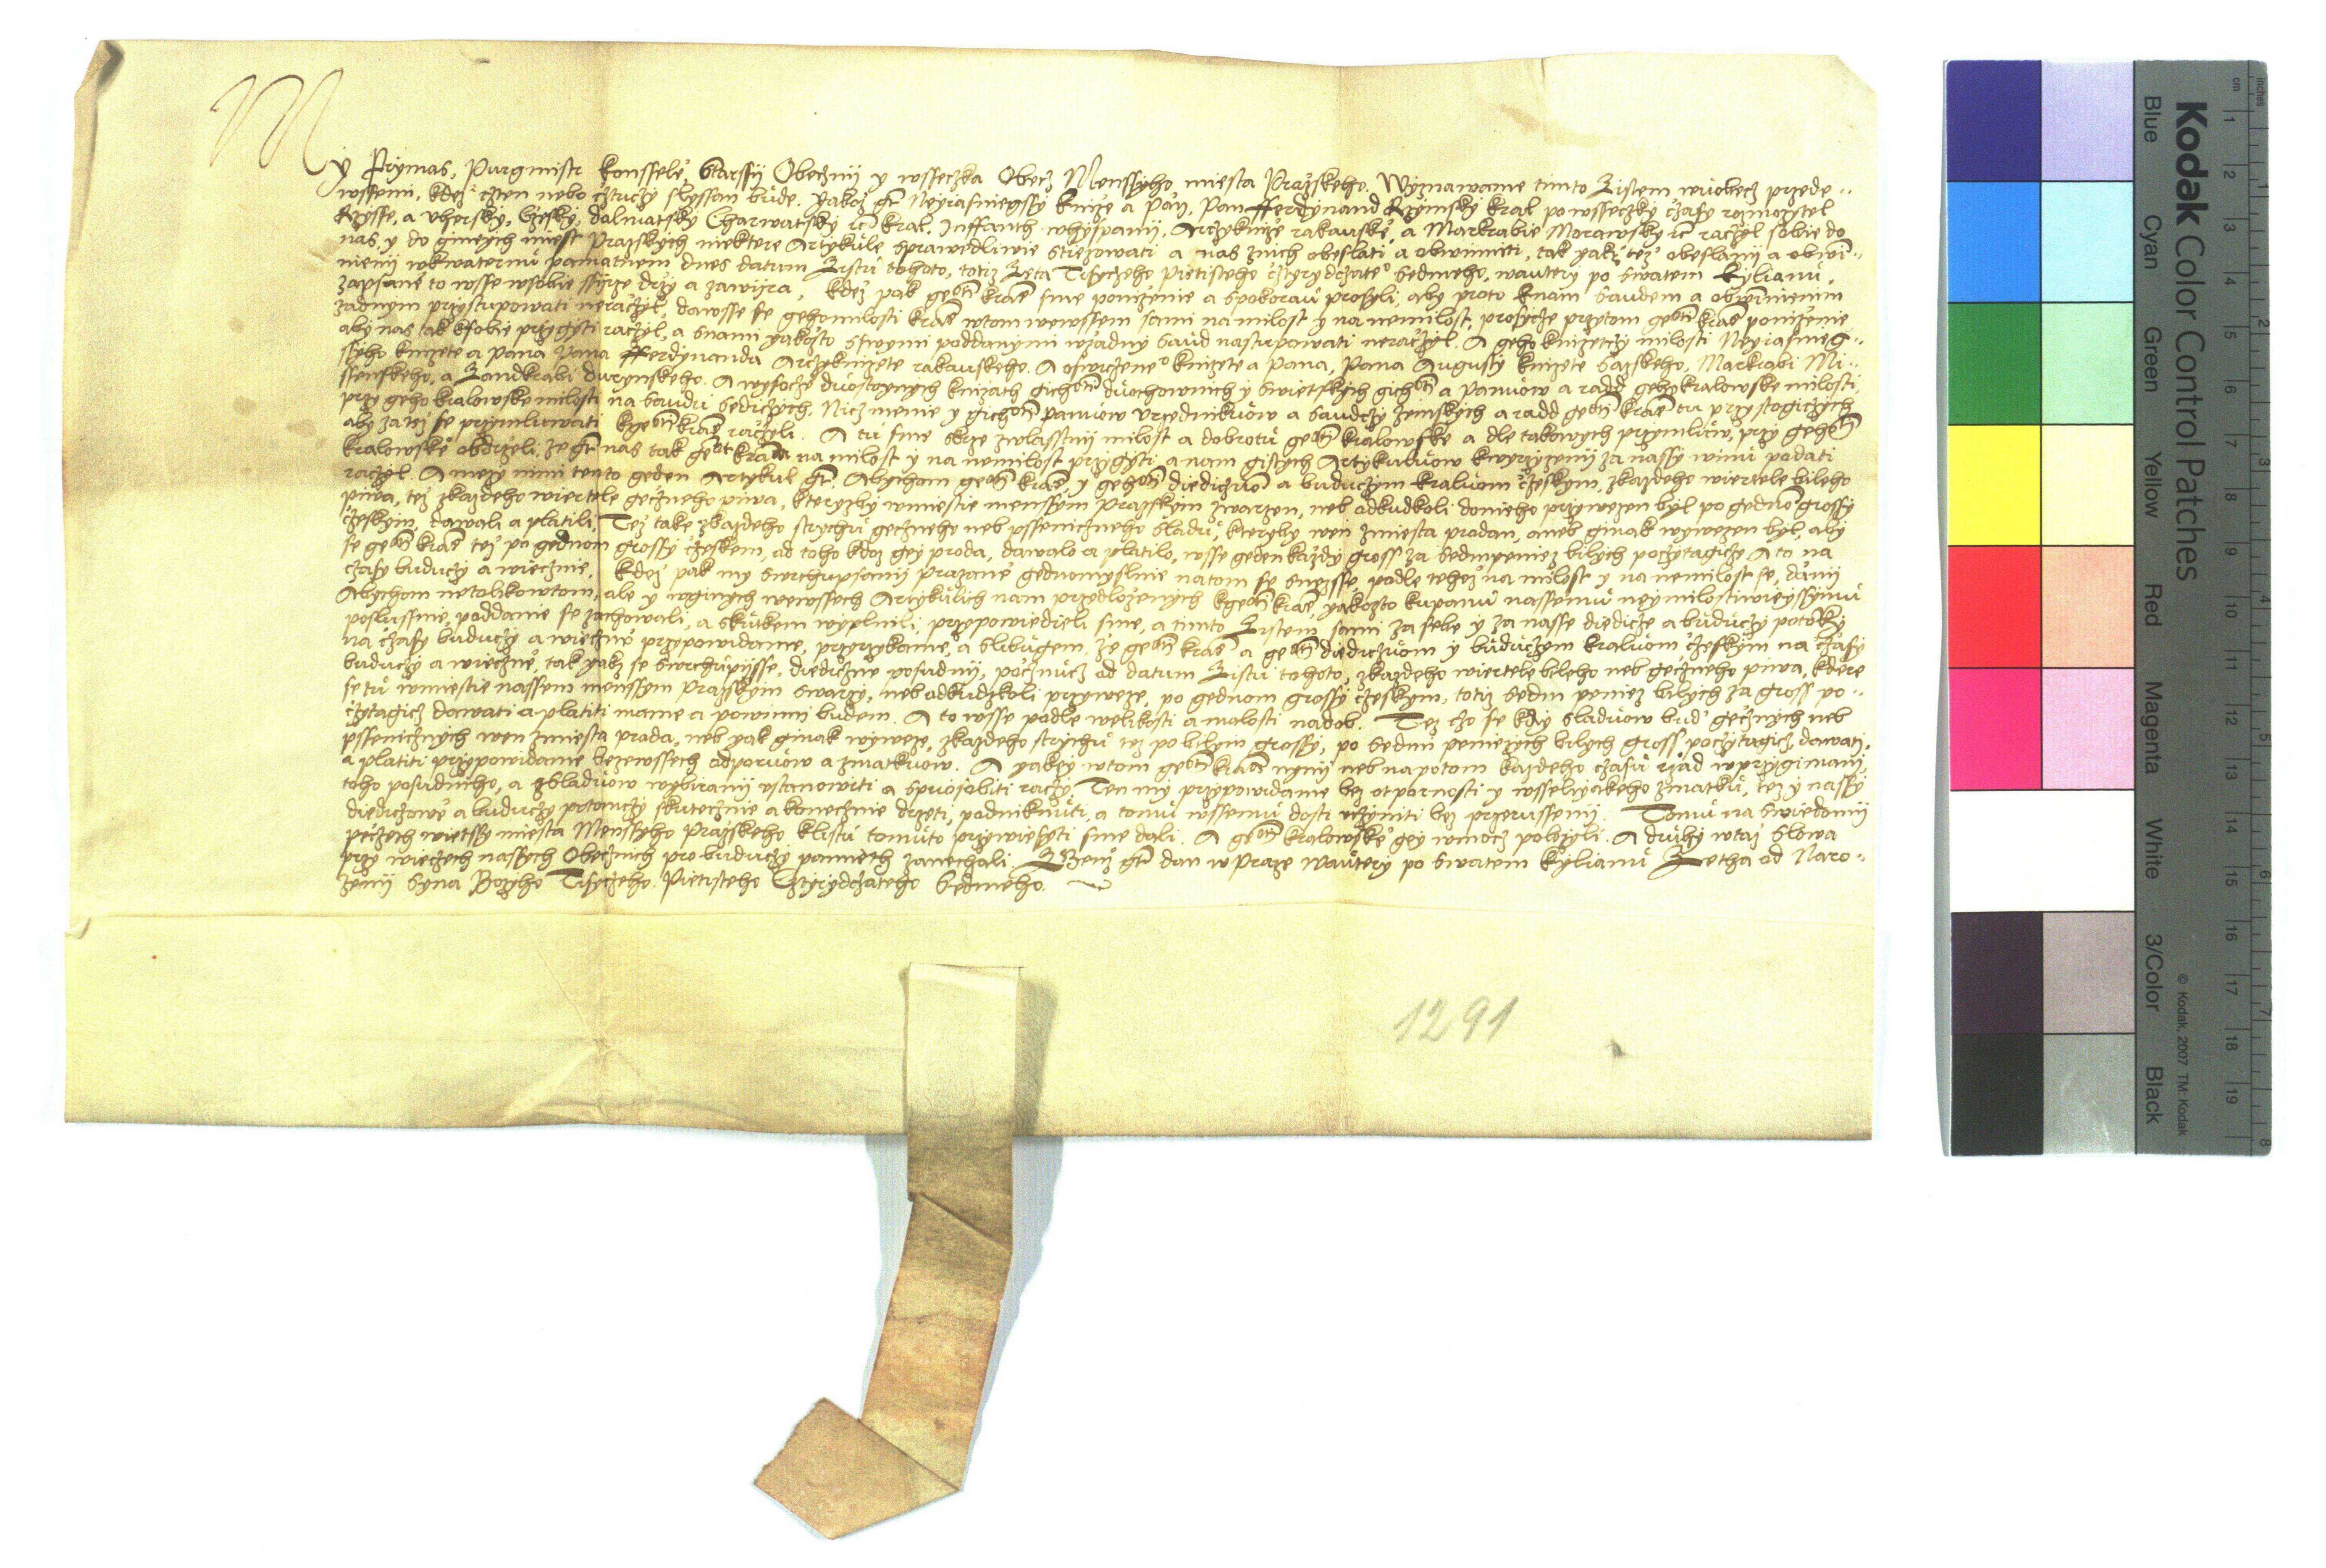 My Prymas, Purgmistr konssele, Starssy Obeczny y wsseczka Obecz Menssyho miesta Prazskeho. Wyznawame timto Listem wuobecz przede
wssemi, kdez czten nebo cztuczy slyssan bude. Yakoz gt Neyyasnieyssy knize a Pan, Pan Fferdynand Rzymsky kral po wsseczky czasy rozmnozytel
Rzysse, a Uhersky, Czesky, dalmatsky Charwatsky rc kral. Inffanth whyspanij. Arczyknize rakauske, a Markrabie Morawsky rc raczyl sobie do
nas y do ginych miest Prazskych niektere Artykule sprawedliwie stiezowati a nas znich obeslati a obwiniti, tak yakz tez obeslanij a obwi
nienij wkwaternu pamatnem dnes datum Listu tohoto, totiz Leta Tisyczeho Pietisteho cztyrydczateho Sedmeho, wautery po Swatem Kylianu,
zapsane to wsse wsobie ssyrze drzy a zawira, kdez pak geoti krale sme ponizenie a spokorau prosyli, aby proto knam saudem a obwinienim
zadnym przystupowati neraczyl, dawsse se gehomilosti krale wtom wewssem sami na milost y na nemilost, prosycze przytom geoti krale ponizenie
aby nas tak ksobie przygyti raczyl, a snami yakozto swymi poddanymi wzadny saud nastupowati neraczyl. A geho knizetczy milosti Neyyasnieg
ssyho knizete a pana Pana Fferdynanda Arczyknizete rakauskeho. A oswiczeneho knizete a Pana, Pana Augusty knizete Saskeho, Markrabi Mi
ssenskeho, a Landkrabi durynskeho. A wysocze duostoynych knizath gichoti duochownich y Swietskych gichoti a Panuow a radd geho kralowske milosti
przy geho kralowske milosti na saudu sediczych. Nicz menie y gichoti panuow urzednikuow a saudczy zemskych a radd geoti krale tu przystogiczych
aby zanas se przymluwati kgeoti krale raczyli. A tu sme skrze zwlasstnij milost a dobrotu geoti kralowske a dle takowych przymluw, przy gehoti
kralowske obdrzeli, ze gt nas tak geot krala na milost y na nemilost przygyti a nam gistych Artykuluow kwyrzyzenij za nassy winu podati
raczyl. A mezy nimi tento geden Artykul gt. Abychom geoti krale y gehoti diediczuom a buduczym kraluom czeskym, zkazdeho wiertele bileho
piwa, tez zkazdeho wiertele geczneho piwa, kteryzby wmiestie menssym Prazskym zwarzen, neb odkudkoli doneho przywezen byl po gednom grossy
czeskym, dawali a platili. Tez take zkazdeho strychu geczneho neb psseniczneho sladu, kteryby wen zmiesta prodan, aneb ginak wywezen byl, aby
se geoti krale tez po gednom grossy czeskem, od toho kdoz gey proda, dawalo a platilo, wsse geden kazdy gross za sedmpeniez bilych poczytagicze A to na
czasy buduczy a wiecznie. kdez pak my swrchupsanij Prazane gednomyslnie natom se snesse, podle tehoz na milost y na nemilost se danij
Abychom netolikowtom, ale y wginych wewssech Artykulich nam przedlozenych kgeoti krale yakozto kupanu nassemu neymilostiwieyssymu
poslussnie, poddanie se zachowali, a skutkem wyplnili, przypowiedieli sme, a timto Listem sami za sebe y za nasse diedicze a buduczy potomky
na czasy buduczy a wieczne przypowidame, przyrzykame, a slibugem, ze geoti krale a geoti diediczuom y buduczym kraluom czeskym na czasy
buduczy a wieczne, tak yakz se swrchupisse, diediczne posudnij, poczнucz od datum Listu tohoto, zkazdeho wiertele bileho neb geczneho piwa, kdere
se tu wmiestie nassem menssym Prazskym swarzy, neb odkudzkoli przyweze, po gednom grossy czeskym, totiz sedm peniez bilych za gross po
czytagicz dawati a platiti mame a powinni budem. A to wsse podle welikosti a malosti nadob. Tez czo se kdy sladuow bud gecznych neb
pssenicznych wen zmiesta proda, neb yak ginak wyweze, zkazdeho strychu tez po bilym grossy, po sedmi peniezych bilych gross poczytagicz, dawati,
a platiti przypowidame bezewssech odporuow a zmatkuow. A yakzy wtom geoti krale nynij neb napotom kazdeho czasu rzad wprzygimani
toho posudniho, a zsladuow wybiranij ustanowiti a spuosobiti raczy, Ten my przypowidame bez otpornosti y wsselyakeho zmatku, tez y nassy
diediczowe a buduczy potomczy skutecznie a konecznie drzeti, podniknuti, a tomu wssemu dosti ucziniti bez przerussenij. Tomu na Swiedomij
peczeth wietssy miesta Menssyho Prazskeho klistu tomuto przywiesyti sme dali. A geoti kralowske gey wmocz polozyli. A druhy wtaz slowa
przy wieczech nassych Obecznich pro buduczy pamieth zanechali. Genz gt dan w Praze wautery po Swatem Kylianu Letha od Naro
zenij Syna Bozyho Tisyczeho Pietisteho Cztyrydczateho Sedmeho.
1291
Kodak Color Control Patches
Blue Cyan Green Yellow Red Magenta White 3/Color Black
© Kodak, 2007 TM: Kodak
cm 1 2 3 4 5 6 7 8 9 10 11 12 13 14 15 16 17 18 19
inches 1 2 3 4 5 6 7 8